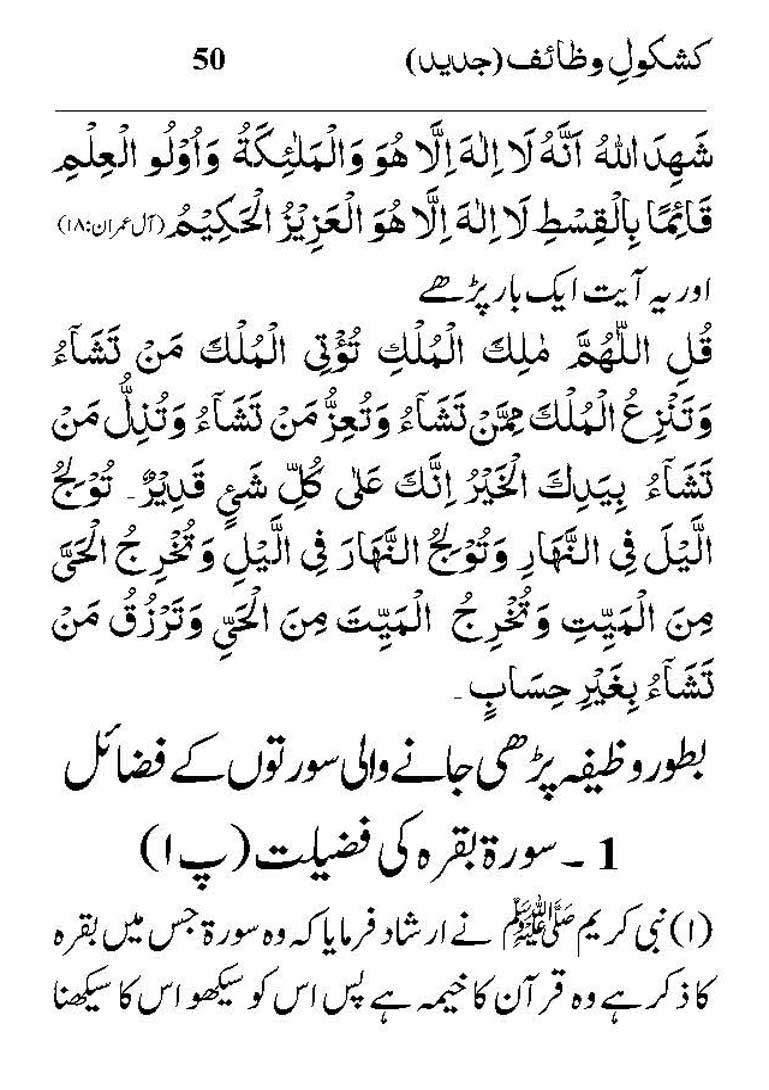 کشکولِ وظائف (جدید) 50
شَهِدَ اللّٰهُ اَنَّهُ لَا اِلٰهَ اِلَّا هُوَ وَالْمَلٰئِكَةُ وَاُوْلُو الْعِلْمِ
قَائِمًا بِالْقِسْطِ لَا اِلٰهَ اِلَّا هُوَ الْعَزِيْزُ الْحَكِيْمُ (آل عمران:۱۸)
اور یہ آیت ایک بار پڑھے
قُلِ اللّٰهُمَّ مٰلِكَ الْمُلْكِ تُؤْتِى الْمُلْكَ مَنْ تَشَآءُ
وَتَنْزِعُ الْمُلْكَ مِمَّنْ تَشَآءُ وَتُعِزُّ مَنْ تَشَآءُ وَتُذِلُّ مَنْ
تَشَآءُ بِيَدِكَ الْخَيْرُ اِنَّكَ عَلٰى كُلِّ شَئٍ قَدِيْرٌ۔ تُوْلِجُ
الَّيْلَ فِى النَّهَارِ وَتُوْلِجُ النَّهَارَ فِى الَّيْلِ وَتُخْرِجُ الْحَىَّ
مِنَ الْمَيِّتِ وَتُخْرِجُ الْمَيِّتَ مِنَ الْحَىِّ وَتَرْزُقُ مَنْ
تَشَآءُ بِغَيْرِ حِسَابٍ۔
بطور وظیفہ پڑھی جانے والی سورتوں کے فضائل
1 ۔ سورۃ بقرہ کی فضیلت (پ ۱)
(۱) نبی کریم ﷺ نے ارشاد فرمایا کہ وہ سورۃ جس میں بقرہ
کا ذکر ہے وہ قرآن کا خیمہ ہے پس اس کو سیکھو اس کا سیکھنا